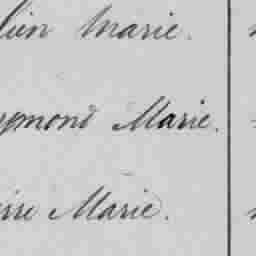 lien Marie.
aymond Marie.
erre Marie.